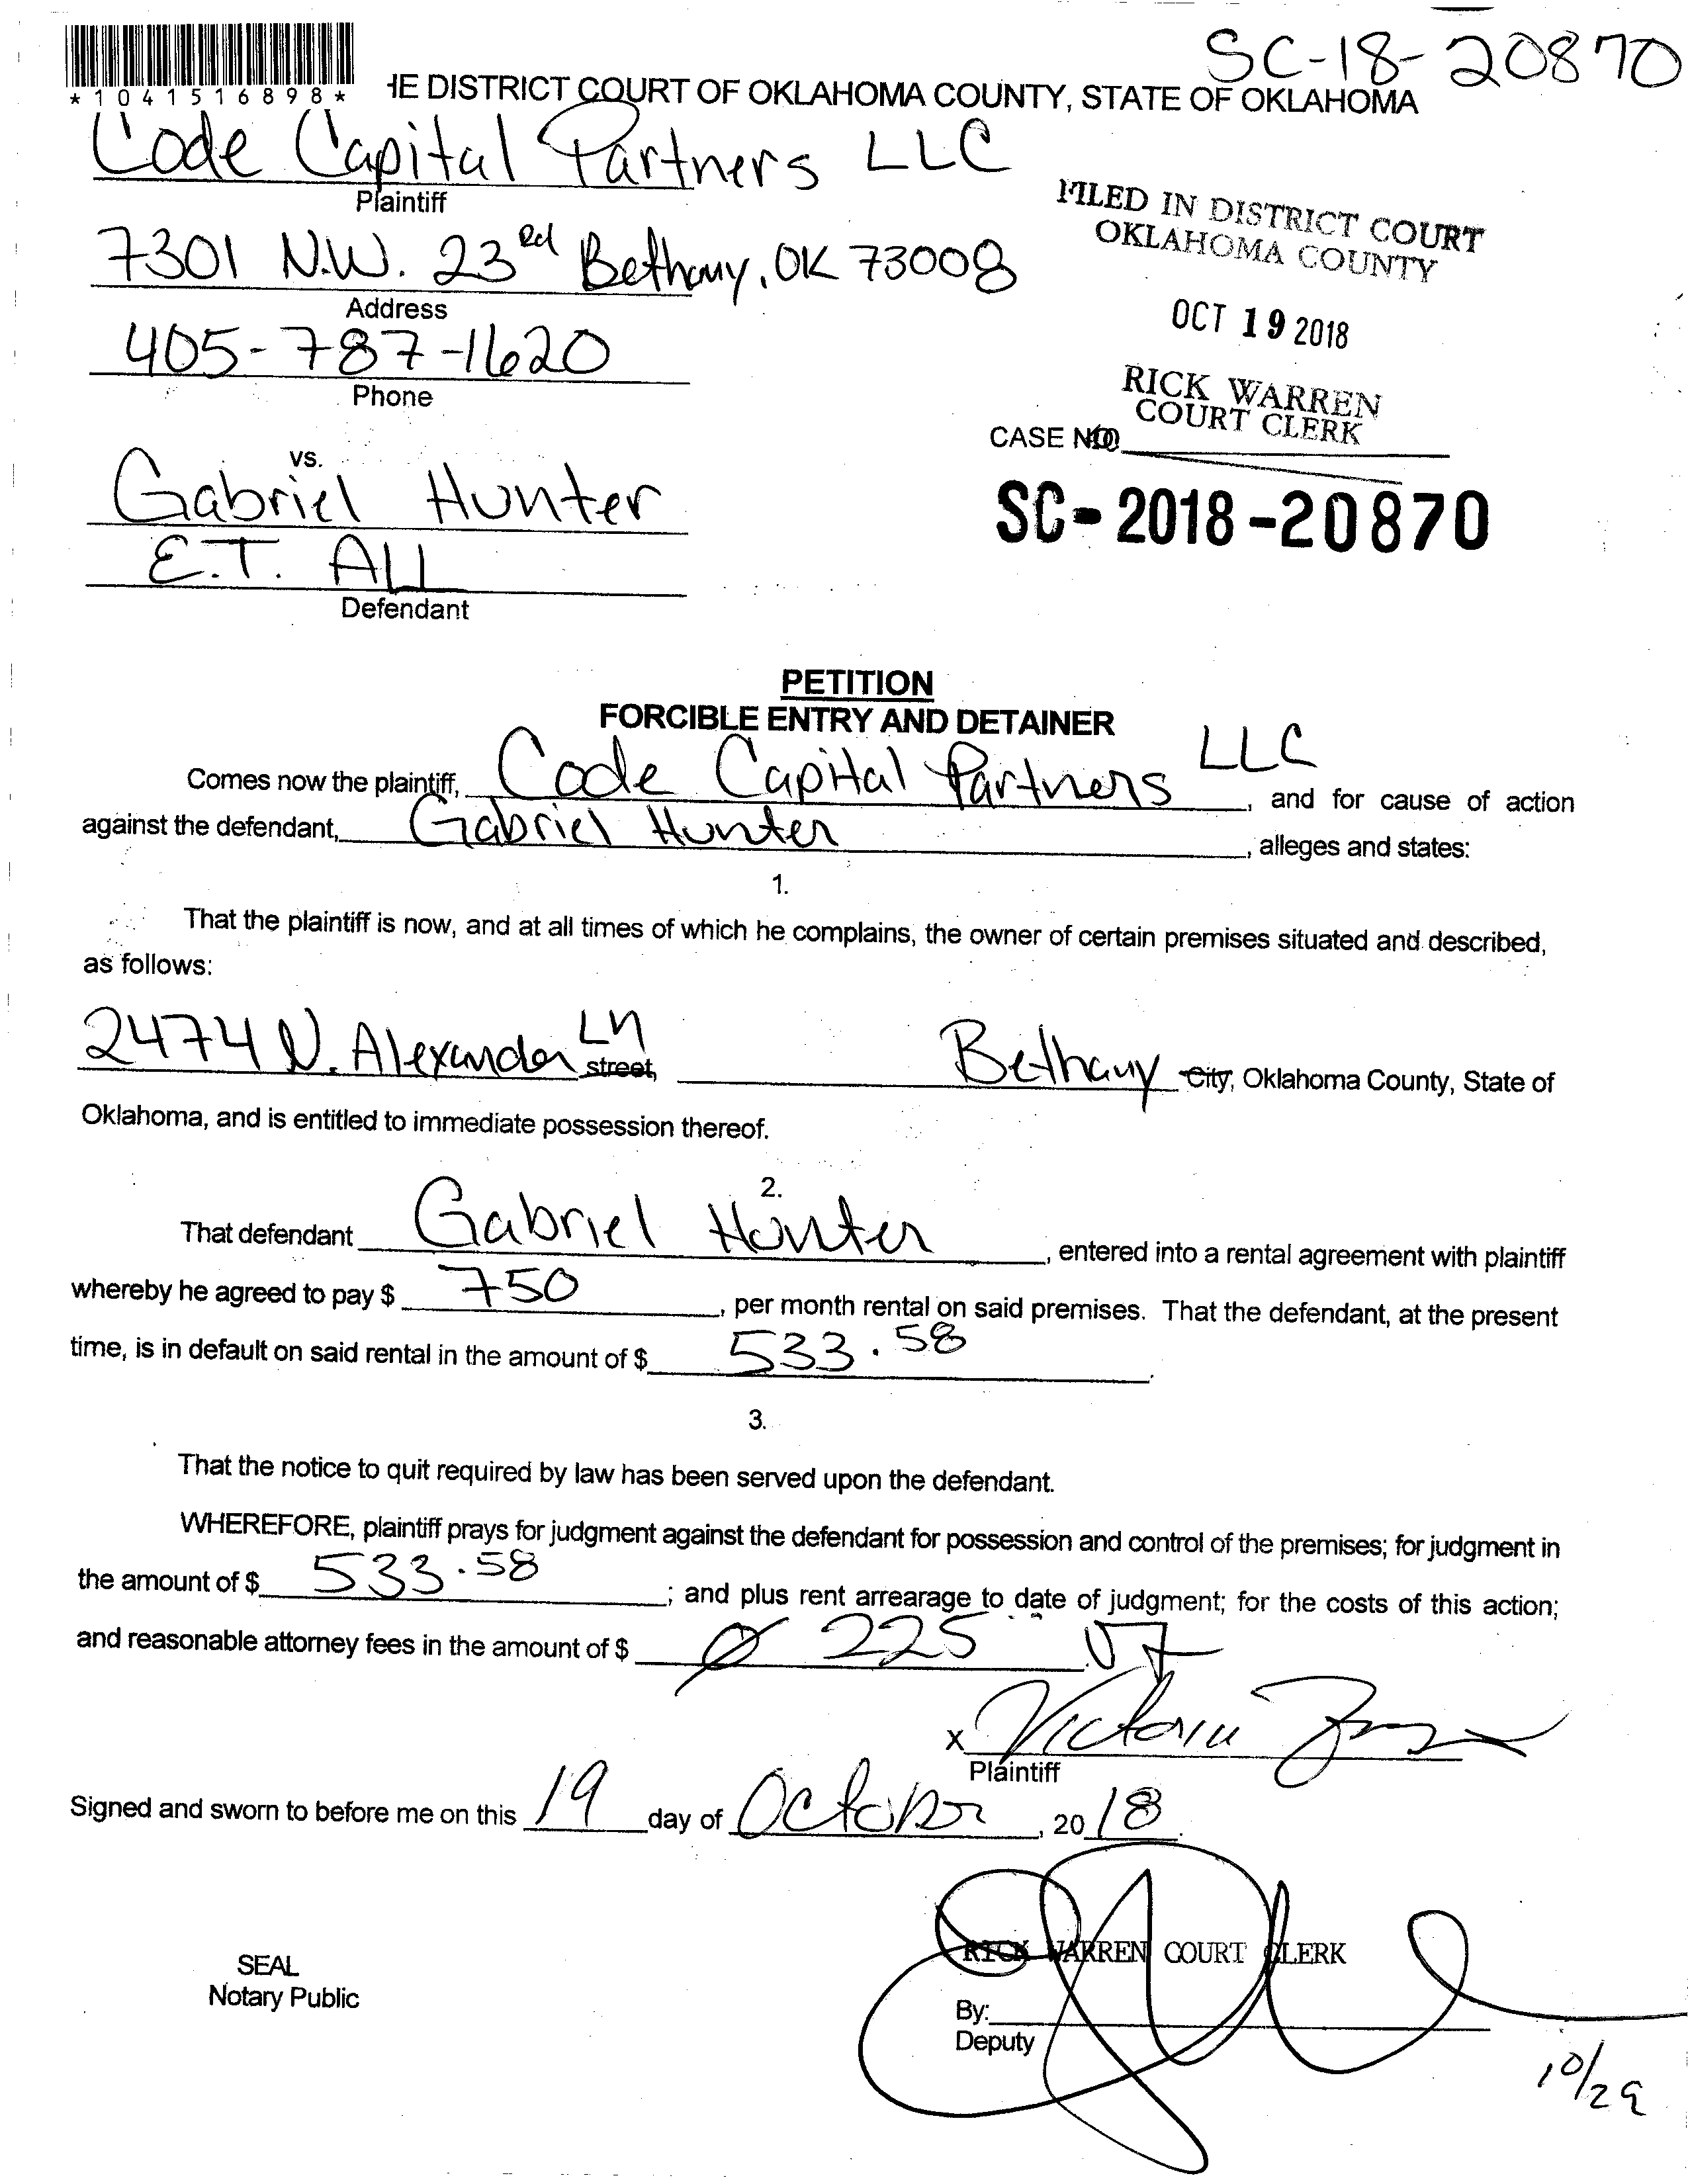 SC-18-20870
*1041516898*
HE DISTRICT COURT OF OKLAHOMA COUNTY, STATE OF OKLAHOMA
Code Capital Partners LLC
Plaintiff
7301 N.W. 23rd Bethany, OK 73008
Address
405-787-1620
Phone
FILED IN DISTRICT COURT
OKLAHOMA COUNTY
OCT 19 2018
RICK WARREN
COURT CLERK
CASE NO.
SC-2018-20870
vs.
Gabriel Hunter
E.T. All
Defendant
PETITION
FORCIBLE ENTRY AND DETAINER
Comes now the plaintiff, Code Capital Partners LLC, and for cause of action
against the defendant, Gabriel Hunter, alleges and states:
1.
That the plaintiff is now, and at all times of which he complains, the owner of certain premises situated and described,
as follows:
2474 N. Alexander Ln street, Bethany City, Oklahoma County, State of
Oklahoma, and is entitled to immediate possession thereof.
2.
That defendant Gabriel Hunter, entered into a rental agreement with plaintiff
whereby he agreed to pay $ 750, per month rental on said premises. That the defendant, at the present
time, is in default on said rental in the amount of $ 533.58.
3.
That the notice to quit required by law has been served upon the defendant.
WHEREFORE, plaintiff prays for judgment against the defendant for possession and control of the premises; for judgment in
the amount of $ 533.58; and plus rent arrearage to date of judgment; for the costs of this action;
and reasonable attorney fees in the amount of $ Ø 225
x Victoria
Plaintiff
Signed and sworn to before me on this 19 day of October, 2018.
SEAL
Notary Public
RICK WARREN COURT CLERK
By:
Deputy
10/29